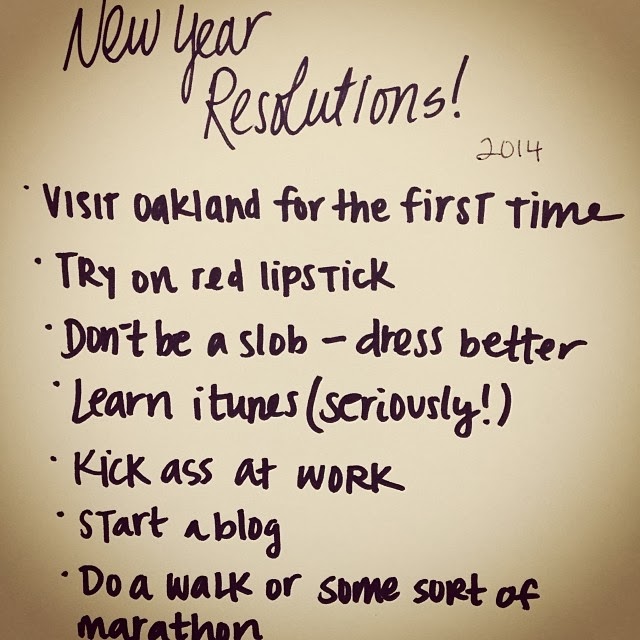 New Year
Resolutions!
2014
· Visit Oakland for the first time
· Try on red lipstick
· Don't be a slob – dress better
· Learn itunes (seriously!)
· Kick ass at work
· Start a blog
· Do a walk or some sort of
marathon